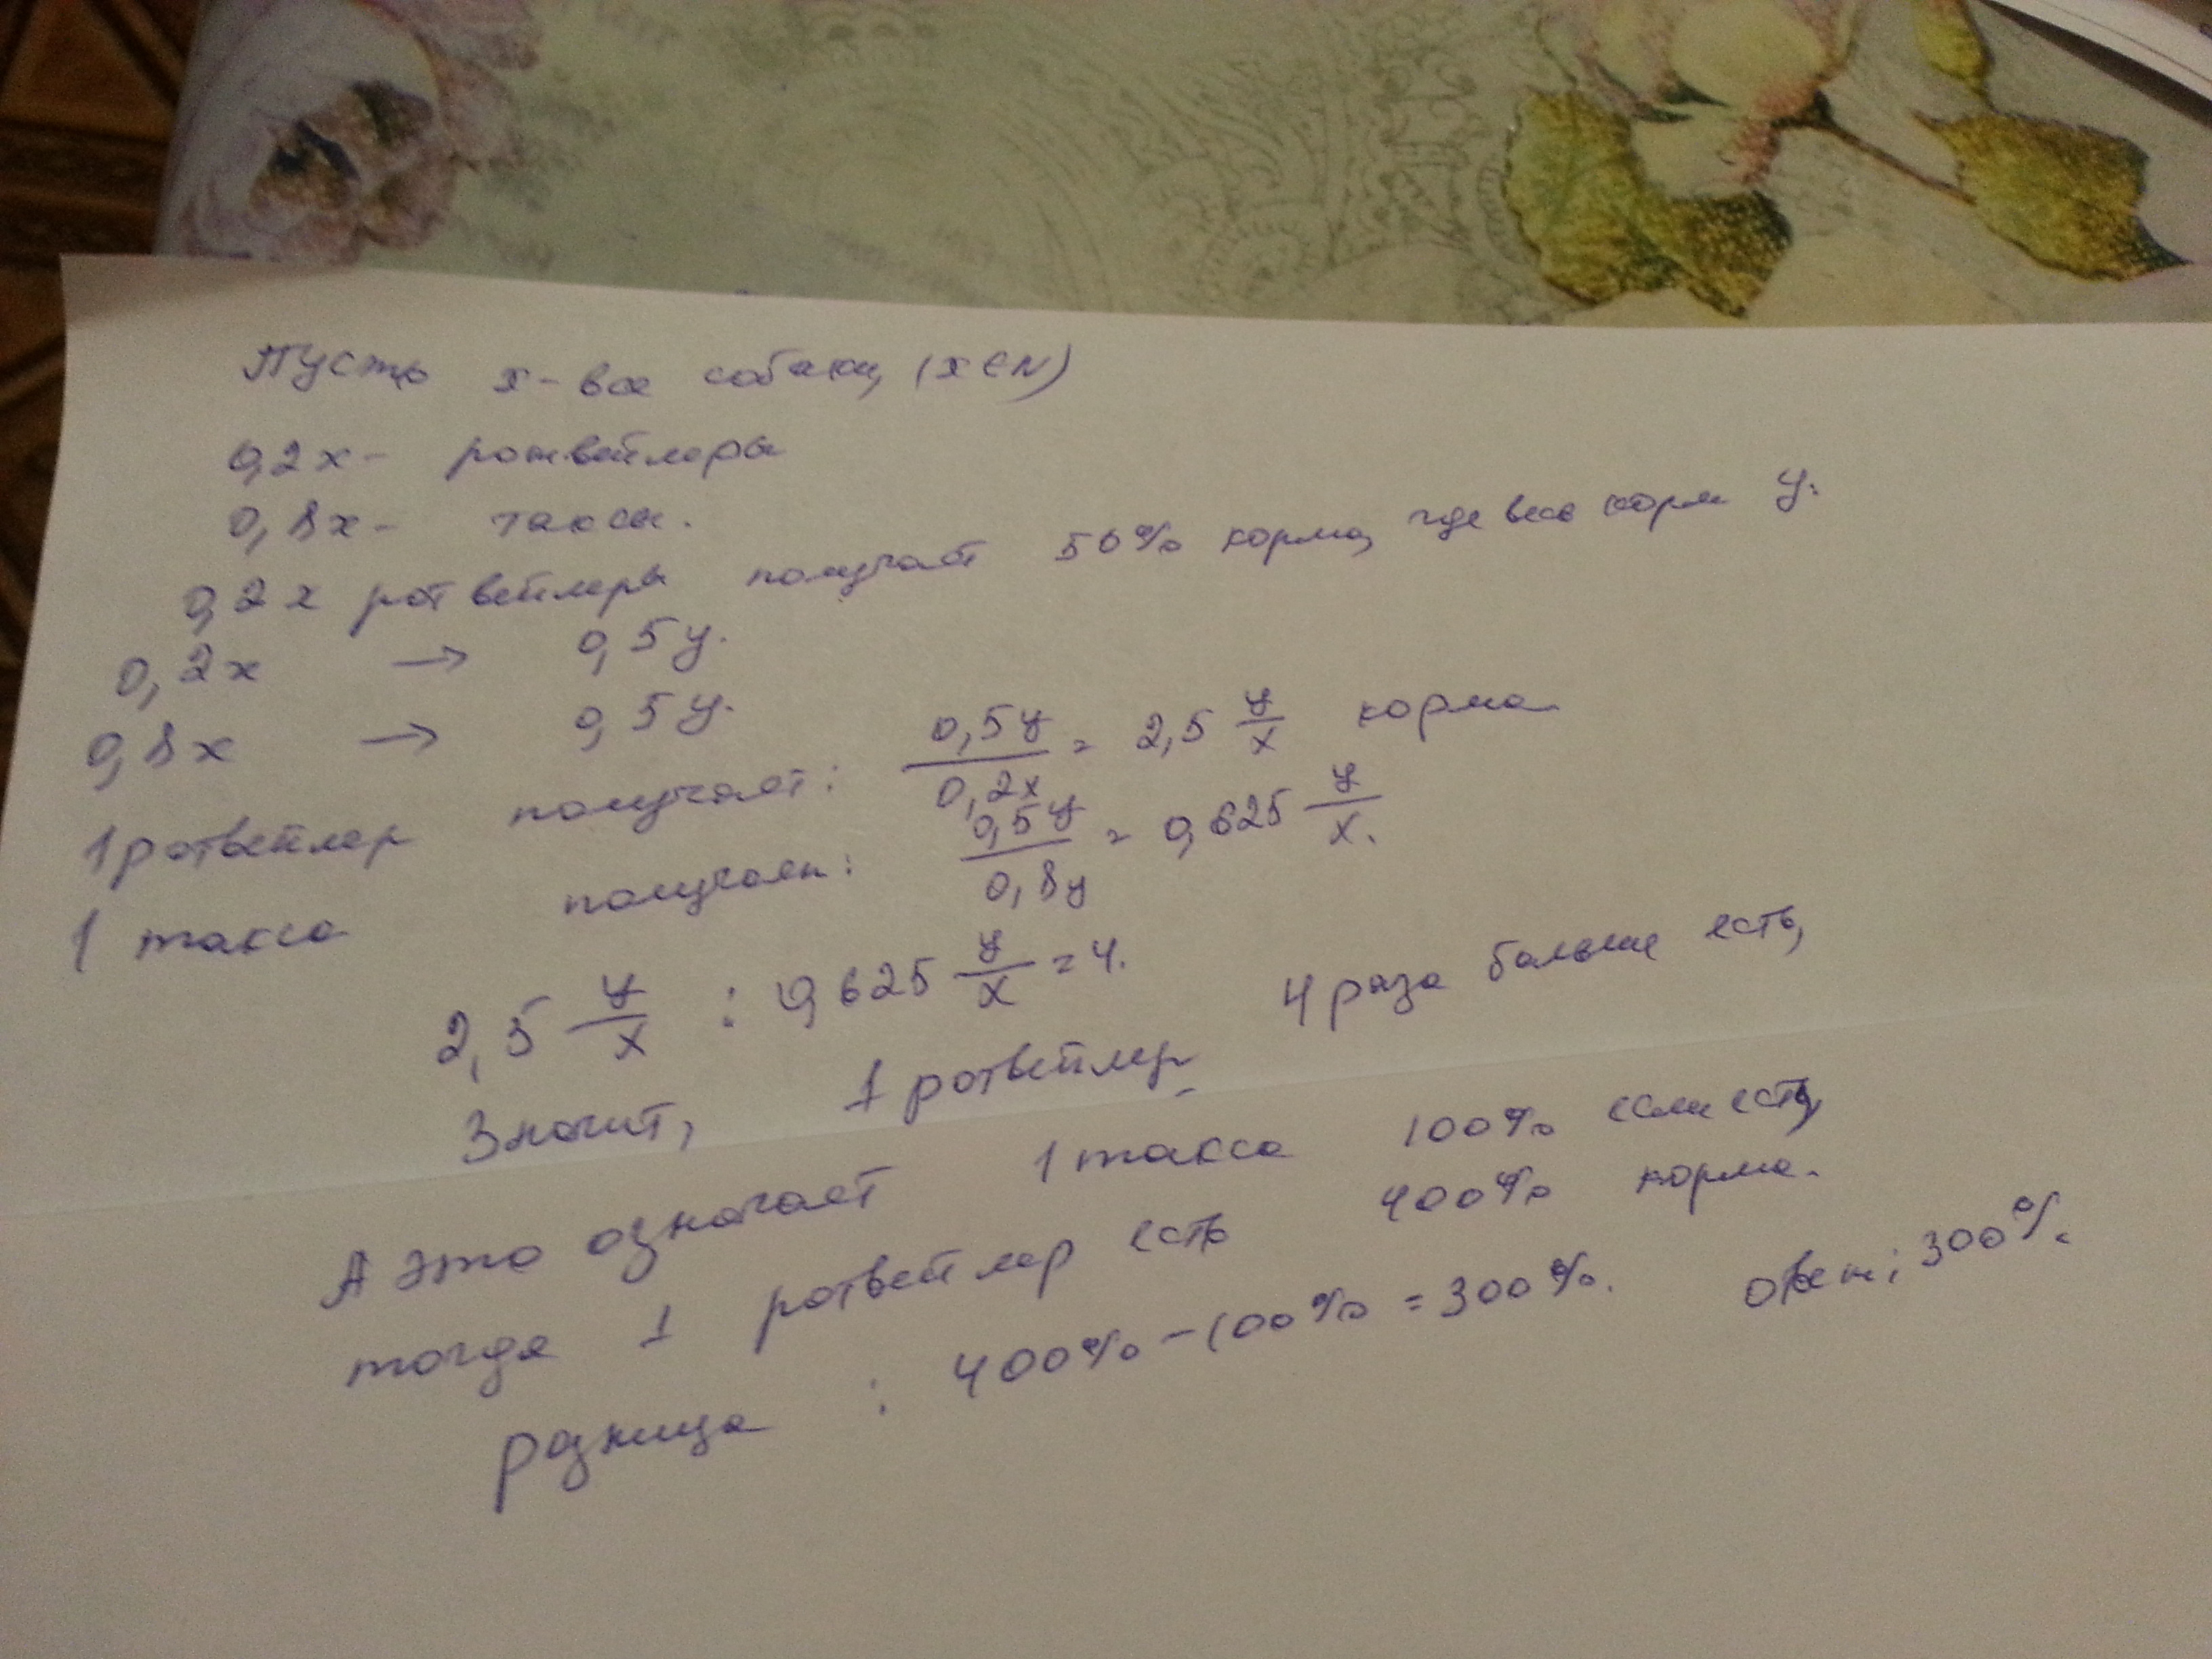 Пусть x - все собаки, (x ∈ N)
0,2x - ротвейлеры
0,8x - таксы.
0,2x ротвейлеры получает 50% корма, где весь корм y.
0,2x → 0,5y.
0,8x → 0,5y.
1 ротвейлер получает: 0,5y/0,2x = 2,5 y/x корма
1 такса получает: 0,5y/0,8y = 0,625 y/x.
2,5 y/x : 0,625 y/x = 4.
Значит, 1 ротвейлер 4 раза больше есть,
А это означает 1 такса 100% если есть,
тогда 1 ротвейлер есть 400% корма.
разница : 400% - 100% = 300%. Ответ: 300%